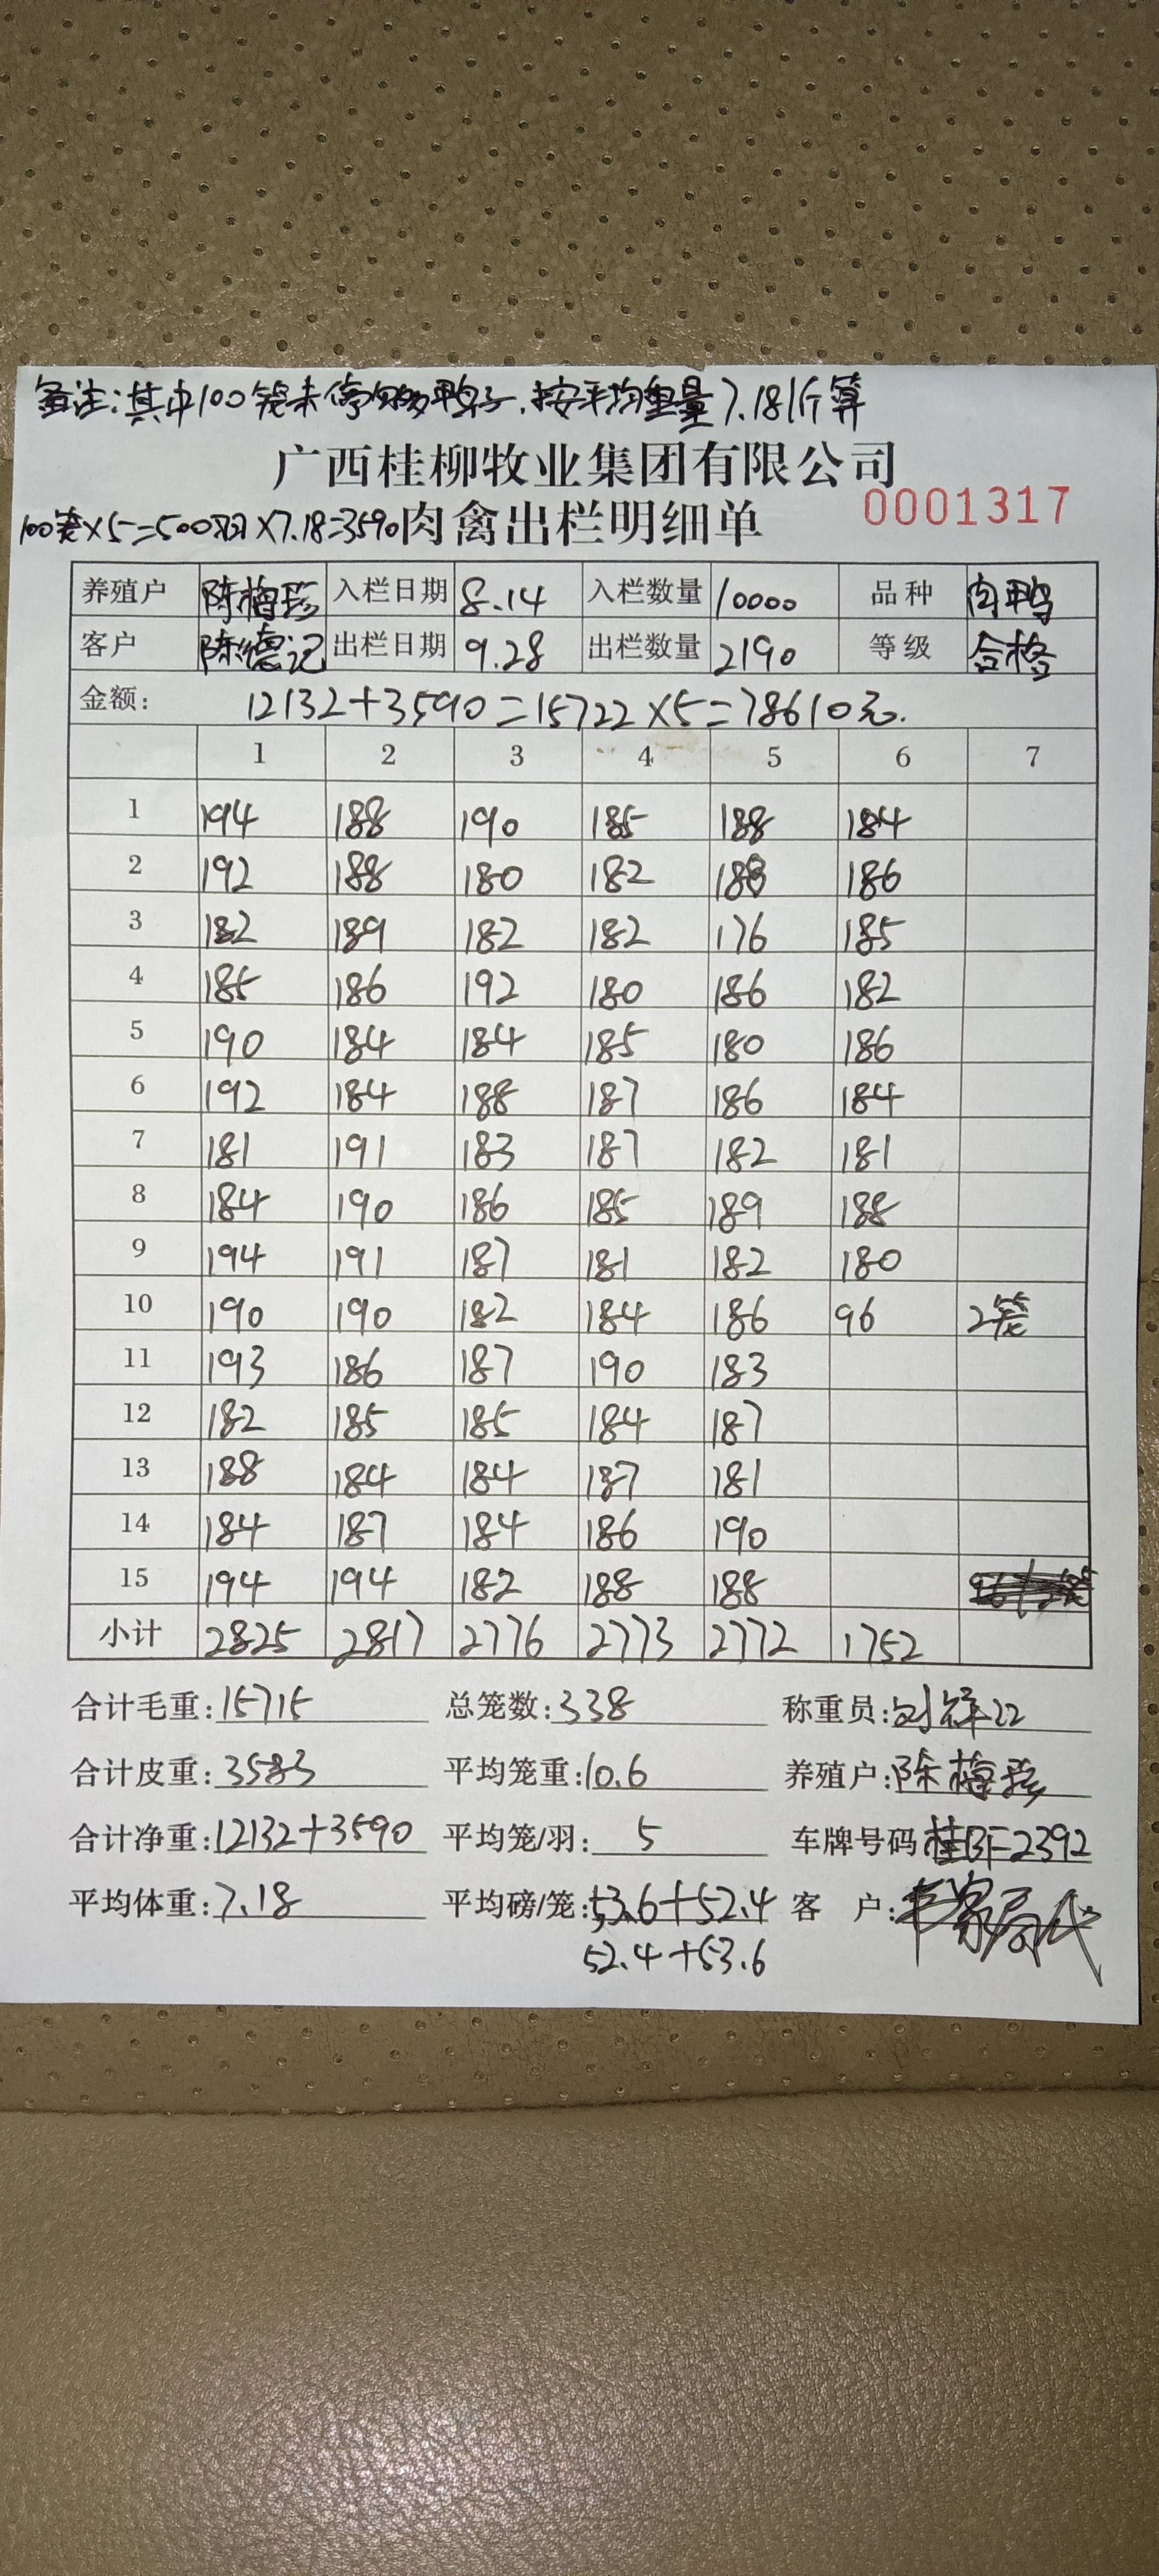 备注:其中100笼未停料鸭子.按平均重量7.18斤算
广西桂柳牧业集团有限公司
0001317
100笼×5=500羽×7.18=3590 肉禽出栏明细单
养殖户 陈梅珍 入栏日期 8.14 入栏数量 10000 品种 肉鸭
客户 陈德记 出栏日期 9.28 出栏数量 2190 等级 合格
金额: 12132+3590=15722×5=78610元.
1 2 3 4 5 6 7
1 194 188 190 185 188 184
2 192 188 180 182 188 186
3 182 189 182 182 176 185
4 185 186 192 180 186 182
5 190 184 184 185 180 186
6 192 184 188 187 186 184
7 181 191 183 187 182 181
8 184 190 186 185 189 188
9 194 191 187 181 182 180
10 190 190 182 184 186 96 2笼
11 193 186 187 190 183
12 182 185 185 184 187
13 188 184 184 187 181
14 184 187 184 186 190
15 194 194 182 188 188
小计 2825 2817 2776 2773 2772 1752
合计毛重:15715 总笼数:338 称重员:
合计皮重:3583 平均笼重:10.6 养殖户:陈梅珍
合计净重:12132+3590 平均笼/羽: 5 车牌号码 桂BF2392
平均体重:7.18 平均磅/笼:53.6+52.4 客 户:
52.4+53.6